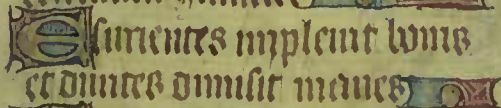 Esurientes impleuit bonis
et diuites dimisit inanes